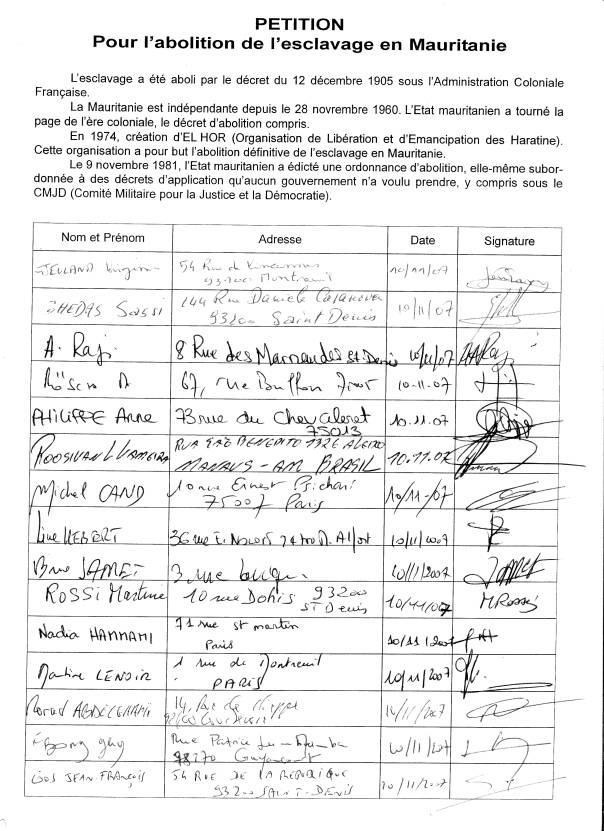 PETITION
Pour l'abolition de l'esclavage en Mauritanie
L'esclavage a été aboli par le décret du 12 décembre 1905 sous l'Administration Coloniale
Française.
La Mauritanie est indépendante depuis le 28 novembre 1960. L'Etat mauritanien a tourné la
page de l'ère coloniale, le décret d'abolition compris.
En 1974, création d'EL HOR (Organisation de Libération et d'Emancipation des Haratine).
Cette organisation a pour but l'abolition définitive de l'esclavage en Mauritanie.
Le 9 novembre 1981, l'Etat mauritanien a édicté une ordonnance d'abolition, elle-même subor-
donnée à des décrets d'application qu'aucun gouvernement n'a voulu prendre, y compris sous le
CMJD (Comité Militaire pour la Justice et la Démocratie).
Nom et Prénom Adresse Date Signature
54 Rue de 10/11/07
93100 Montreuil
Sassi 144 Rue Daniele Casanova 10/11/07
93200 Saint Denis
A. Raji 8 Rue des Marnaudes St Denis 10/11/07
67, rue Buffon 10-11-07
PHILIPPE Anne 73 rue du Chevaleret 10.11.07
75013
MANAUS - AM BRASIL 10.11.07
Michel CAND 10 rue Ernest Psichari 10/11-07
75007 Paris
Line HEBERT 36 rue 10/11/2007
JAMET 3 rue 10/11/2007
ROSSI Martine 10 rue Dohis 93200 10/11/07 M Rossi
ST Denis
Nadia HAMMAMI 71 rue st martin 10/11/2007
Paris
Martine LENOIR 1 rue de Montreuil 10/11/2007
PARIS
14, 10/11/2007
Rue Patrice Lumumba 10/11/2007
78270
JEAN-FRANÇOIS 54 RUE DE LA REPUBLIQUE 10/11/2007
93200 SAINT-DENIS